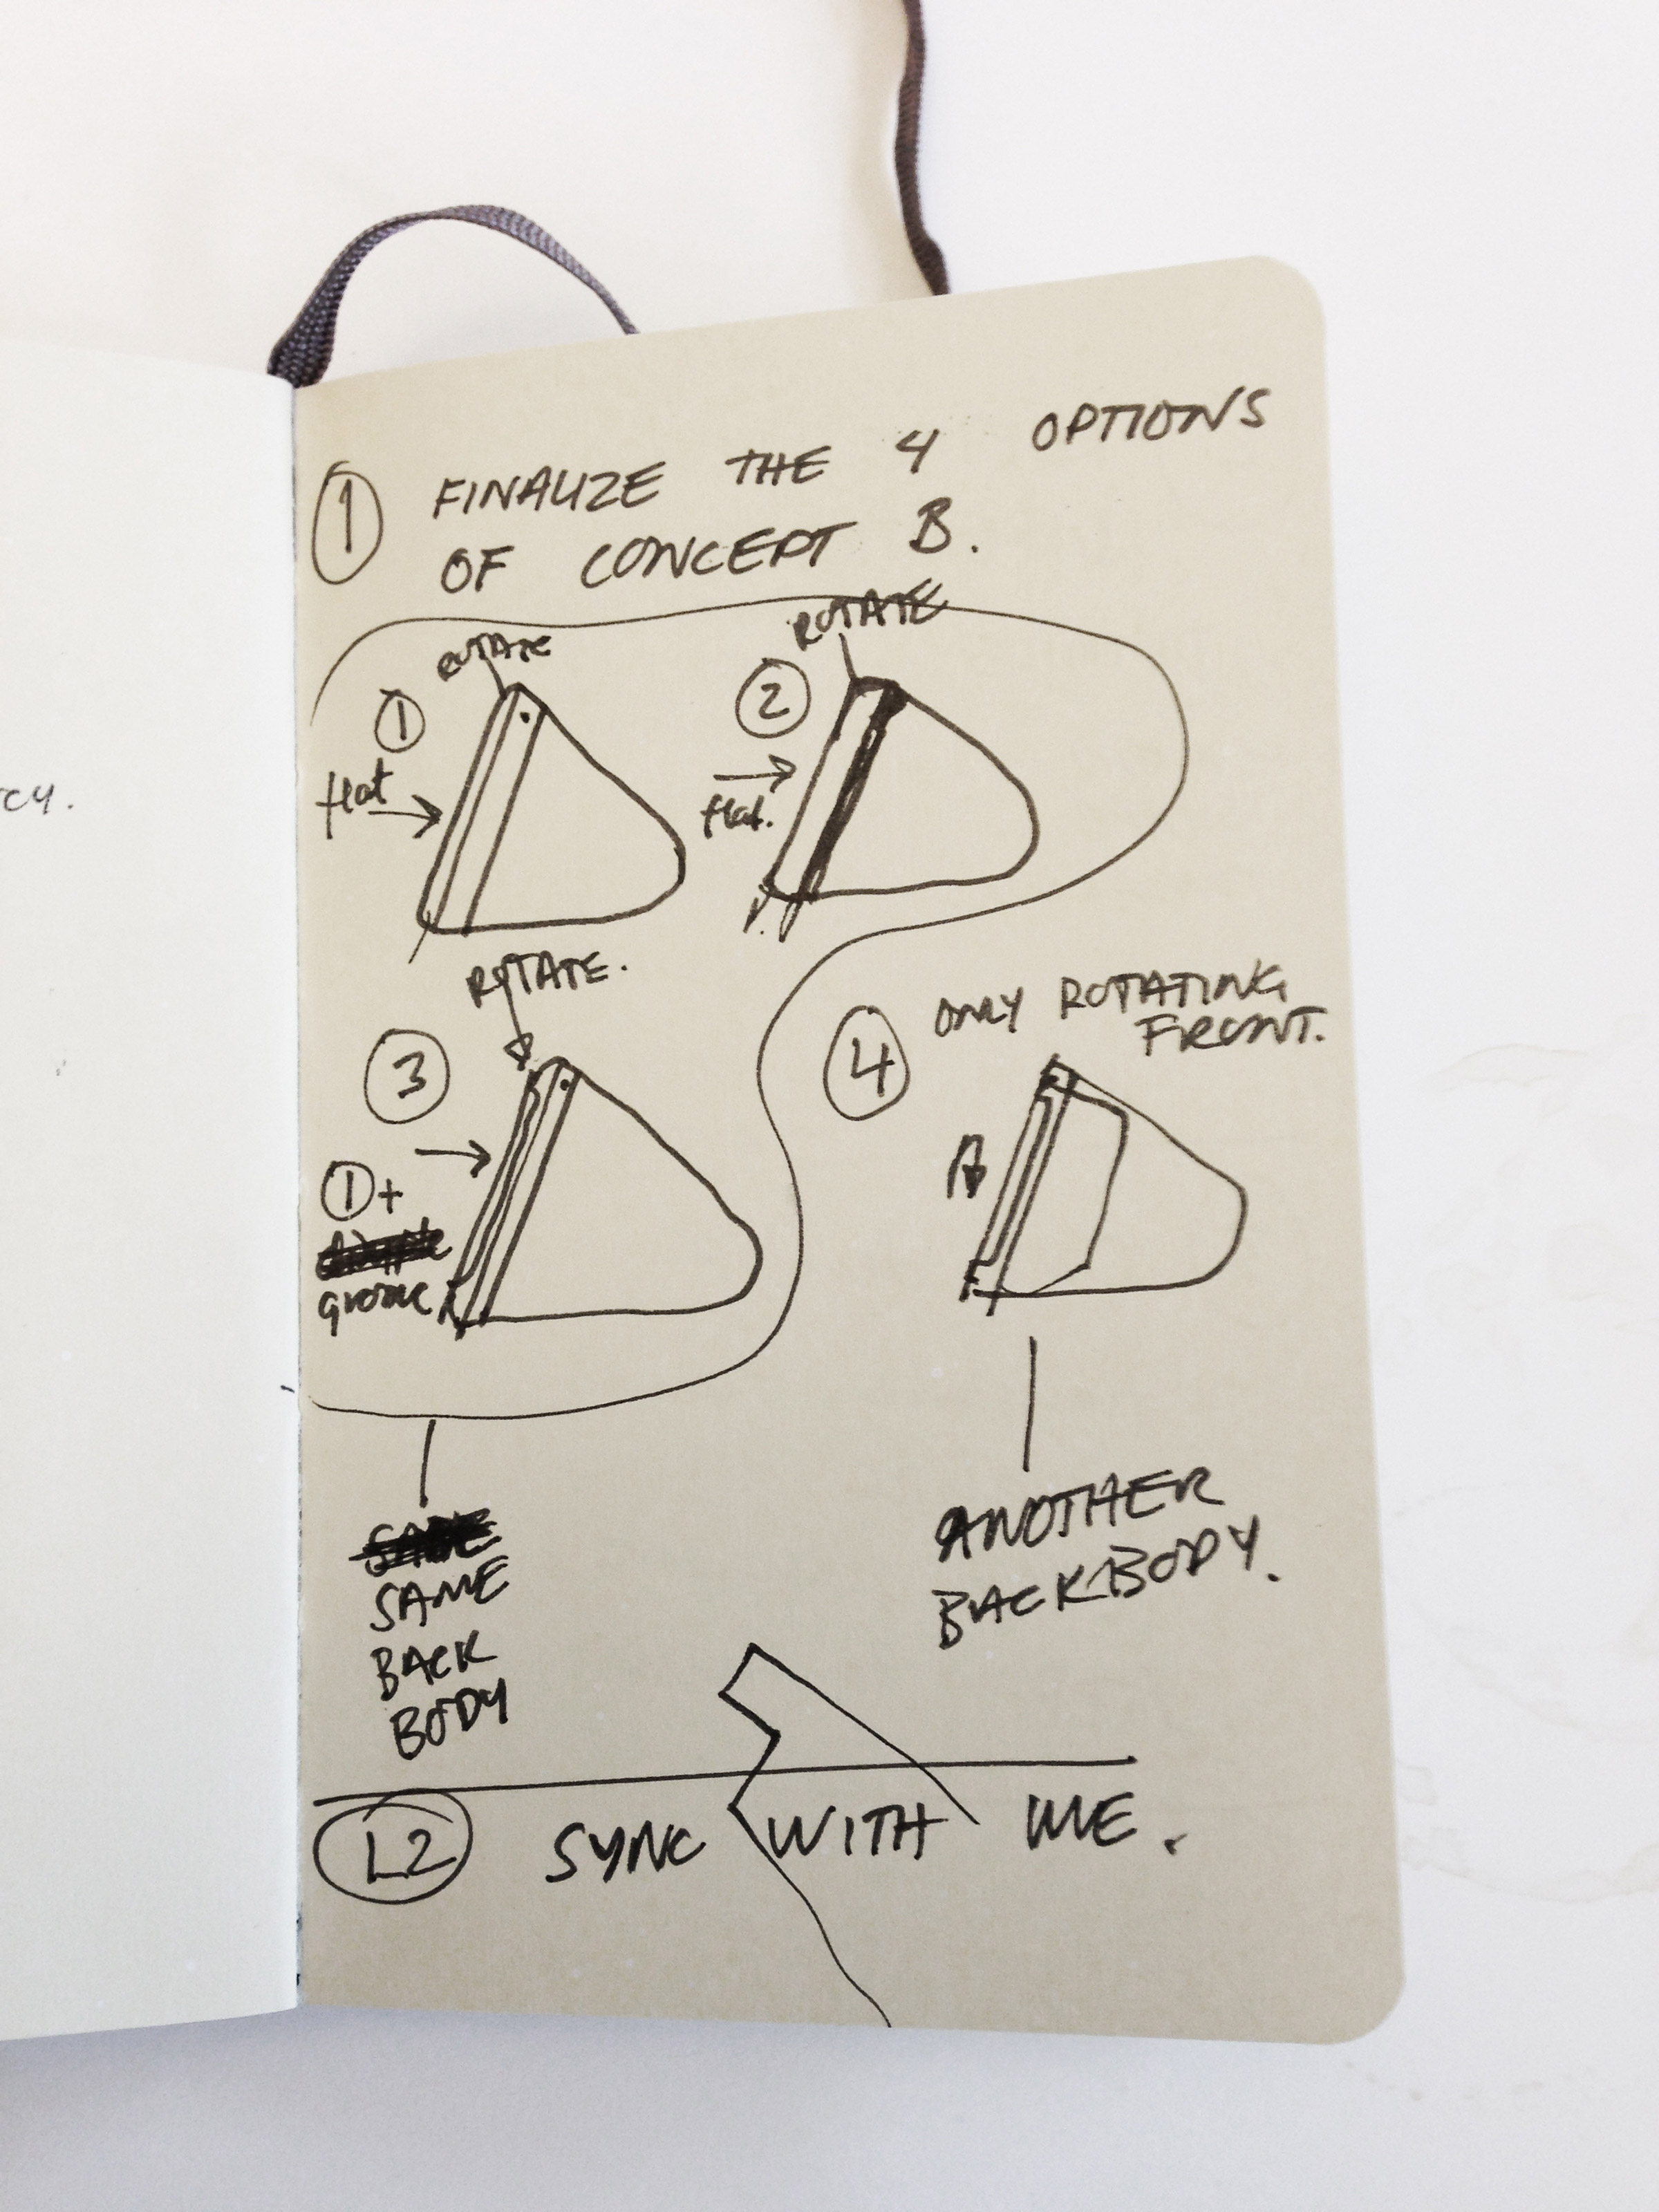 rcy.
① FINALIZE THE 4 OPTIONS
OF CONCEPT B.
ROTATE
①
flat
ROTATE
②
flat.
ROTATE.
③
①+
groove
④ ONLY ROTATING
FRONT.
SAME
BACK
BODY
ANOTHER
BACKBODY.
L2 SYNC WITH ME.